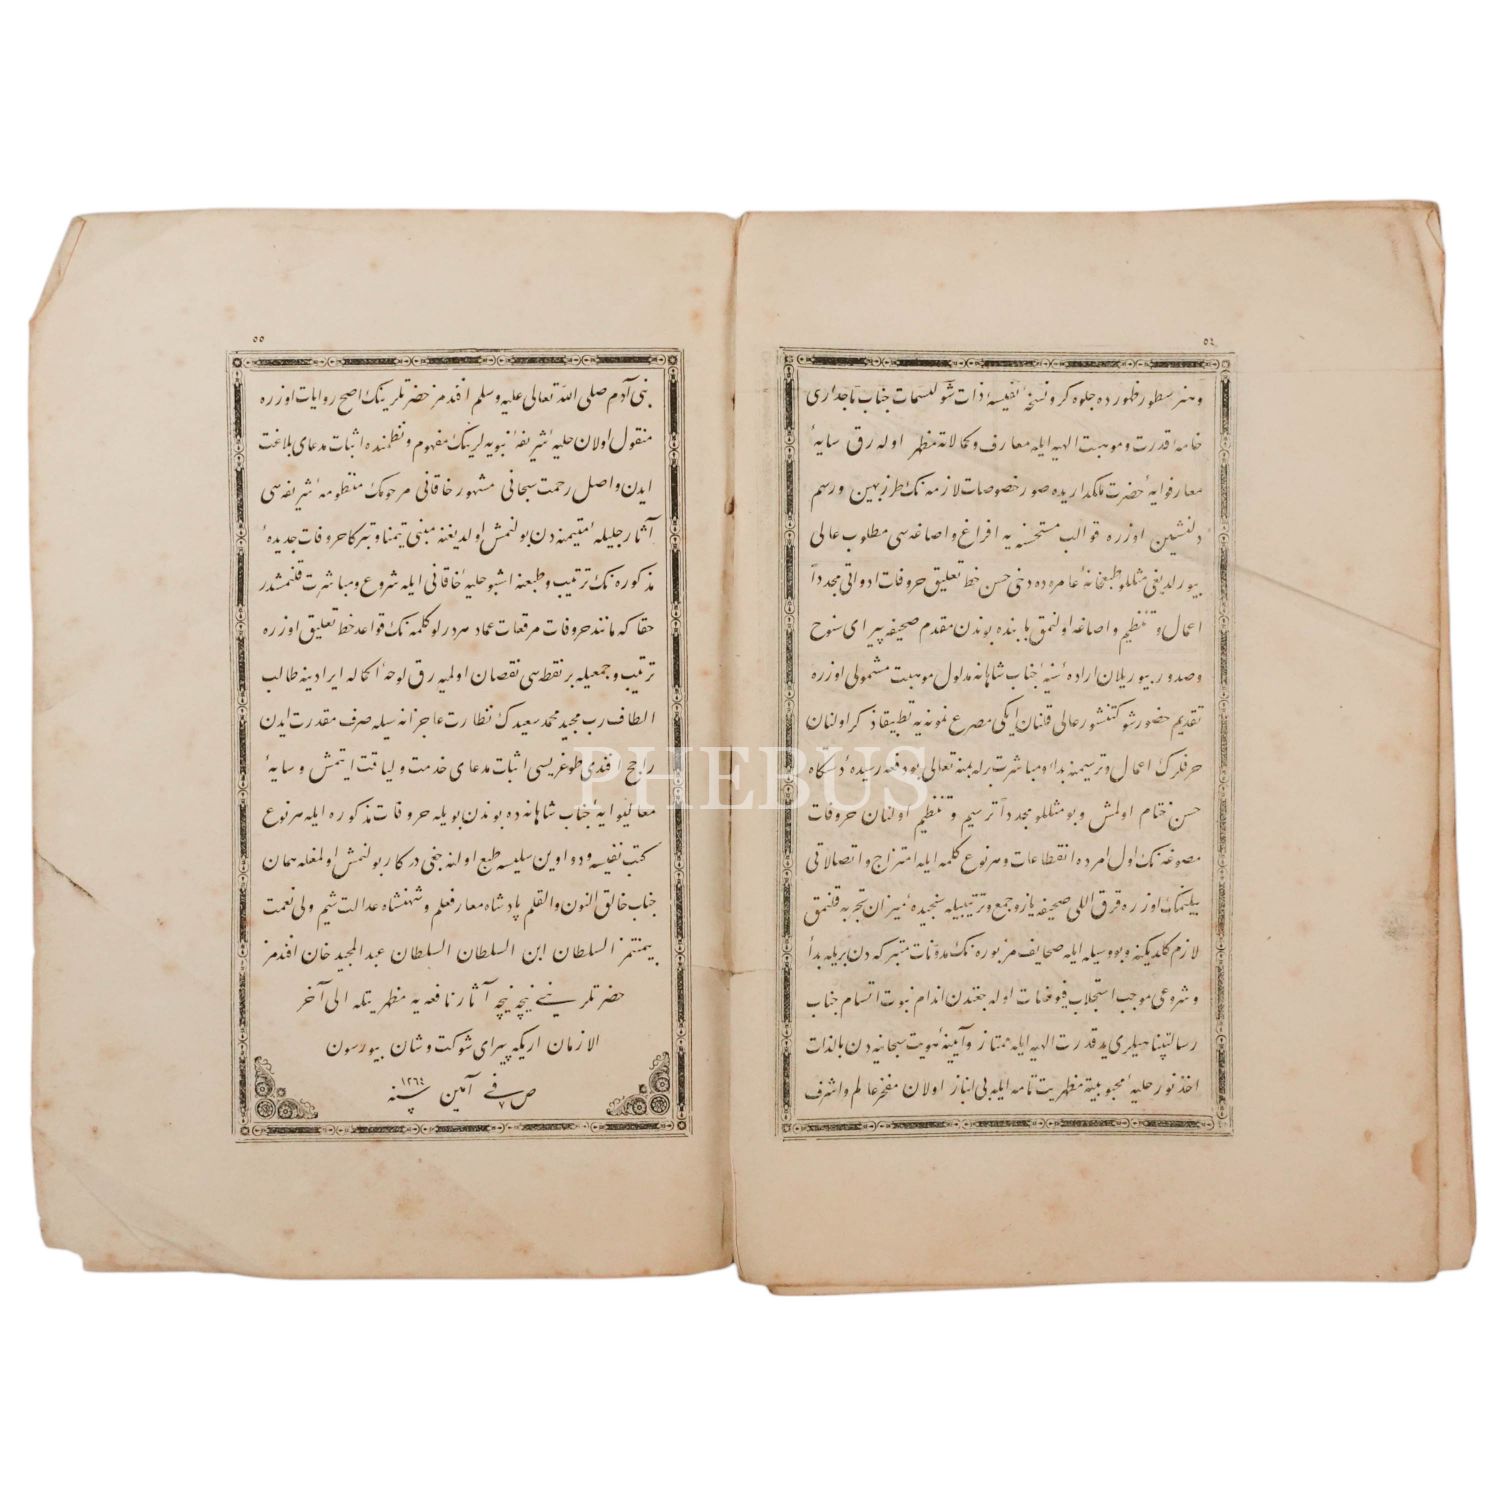 ٥٤
وهنر سطور ظهورده جلوه كر و نسخهٔ نفيسهٔ ذات شوكتسمات جناب تاجدارى
خامهٔ قدرت و موهبت الهيه ايله معارف و كمالاته مظهر اوله رق سايهٔ
معارفوايهٔ حضرت ملكداريده صور خصوصات لازمه نك طرز بهين و رسم
دلنشين اوزره قوالب مستحسنه يه افراغ و اصاغه سى مطلوب عالى
بيورلديغى مثللو طبخانهٔ عامره ده دخى حسن خط تعليق حروفات ادواتى مجدداً
اعمال و تنظيم و اصاغه اولنمق بابنده بوندن مقدم صحيفه پيراى سنوح
و صدور بيوريلان ارادهٔ سنيهٔ جناب شاهانه مدلول موهبت مشمولى اوزره
تقديم حضور شوكتنشور عالى قلنان ايكى مصرع نمونه يه تطبيقا ذكر اولنان
حرفلرك اعمال و ترسيمنه بدأ و مباشرت برله بمنه تعالى بو دفعه رسيدهٔ دستكاه
حسن ختام اولمش و بو مثللو مجدداً ترسيم و تنظيم اولنان حروفات
مصوغه نك اول امرده انقطاعات و هر نوع كلمه ايله امتزاج و اتصالاتى
بيلنمك اوزره قرق اللى صحيفه يازو جمع و ترتيبيله سنجيدهٔ ميزان تجربه قلنمق
لازم كلديكنه و بو وسيله ايله صحايف مزبوره نك مدونات متبركه دن بريله بدأ
و شروعى موجب استجلاب فيوضات اوله جغندن اندام نبوت اتسام جناب
رسالتپناهيلرى يد قدرت الهيه ايله ممتاز و آيينهٔ هويت سبحانيه دن بالذات
اخذ نور حليهٔ محبوبيته مظهريت تامه ايله بى انباز اولان مفخر عالم و اشرف
٥٥
بنى آدم صلى الله تعالى عليه وسلم افندمز حضرتلرينك اصح روايات اوزره
منقول اولان حليهٔ شريفهٔ نبويه لرينك مفهوم و نظمنده اثبات مدعاى بلاغت
ايدن واصل رحمت سبحانى مشهور خاقانى مرحومك منظومهٔ شريفه سى
آثار جليلهٔ متيمنه دن بولنمش اولديغنه مبنى تيمنا و تبركا حروفات جديدهٔ
مذكوره نك ترتيب و طبعنه اشبو حليهٔ خاقانى ايله شروع و مباشرت قلنمشدر
حقا كه مانند حروفات مرقعات عماد هر درلو كلمه نك قواعد خط تعليق اوزره
ترتيب و جمعيله بر نقطه سى نقصان اولميه رق لوحهٔ اكماله ايرادينه طالب
الطاف رب مجيد محمد سعيدك نظارت عاجزانه سيله صرف مقدرت ايدن
راجح افندى طوغريسى اثبات مدعاى خدمت و لياقت ايتمش و سايهٔ
معاليوايهٔ جناب شاهانه ده بوندن بويله حروفات مذكوره ايله هر نوع
كتب نفيسه و دواوين سليسه طبع اولنه جغى دركار بولنمش اولمغله همان
جناب خالق النون والقلم پادشاه معارفعلم و شهنشاه عدالت شيم ولى نعمت
بيمنتمز السلطان ابن السلطان السلطان عبدالمجيد خان افندمز
حضرتلرينى نيجه نيجه آثار نافعه يه مظهريتله الى آخر
الازمان اريكه پيراى شوكت و شان بيورسون
آمين سنه ١٢٦٤ فى ٧ ص
PHEBUS